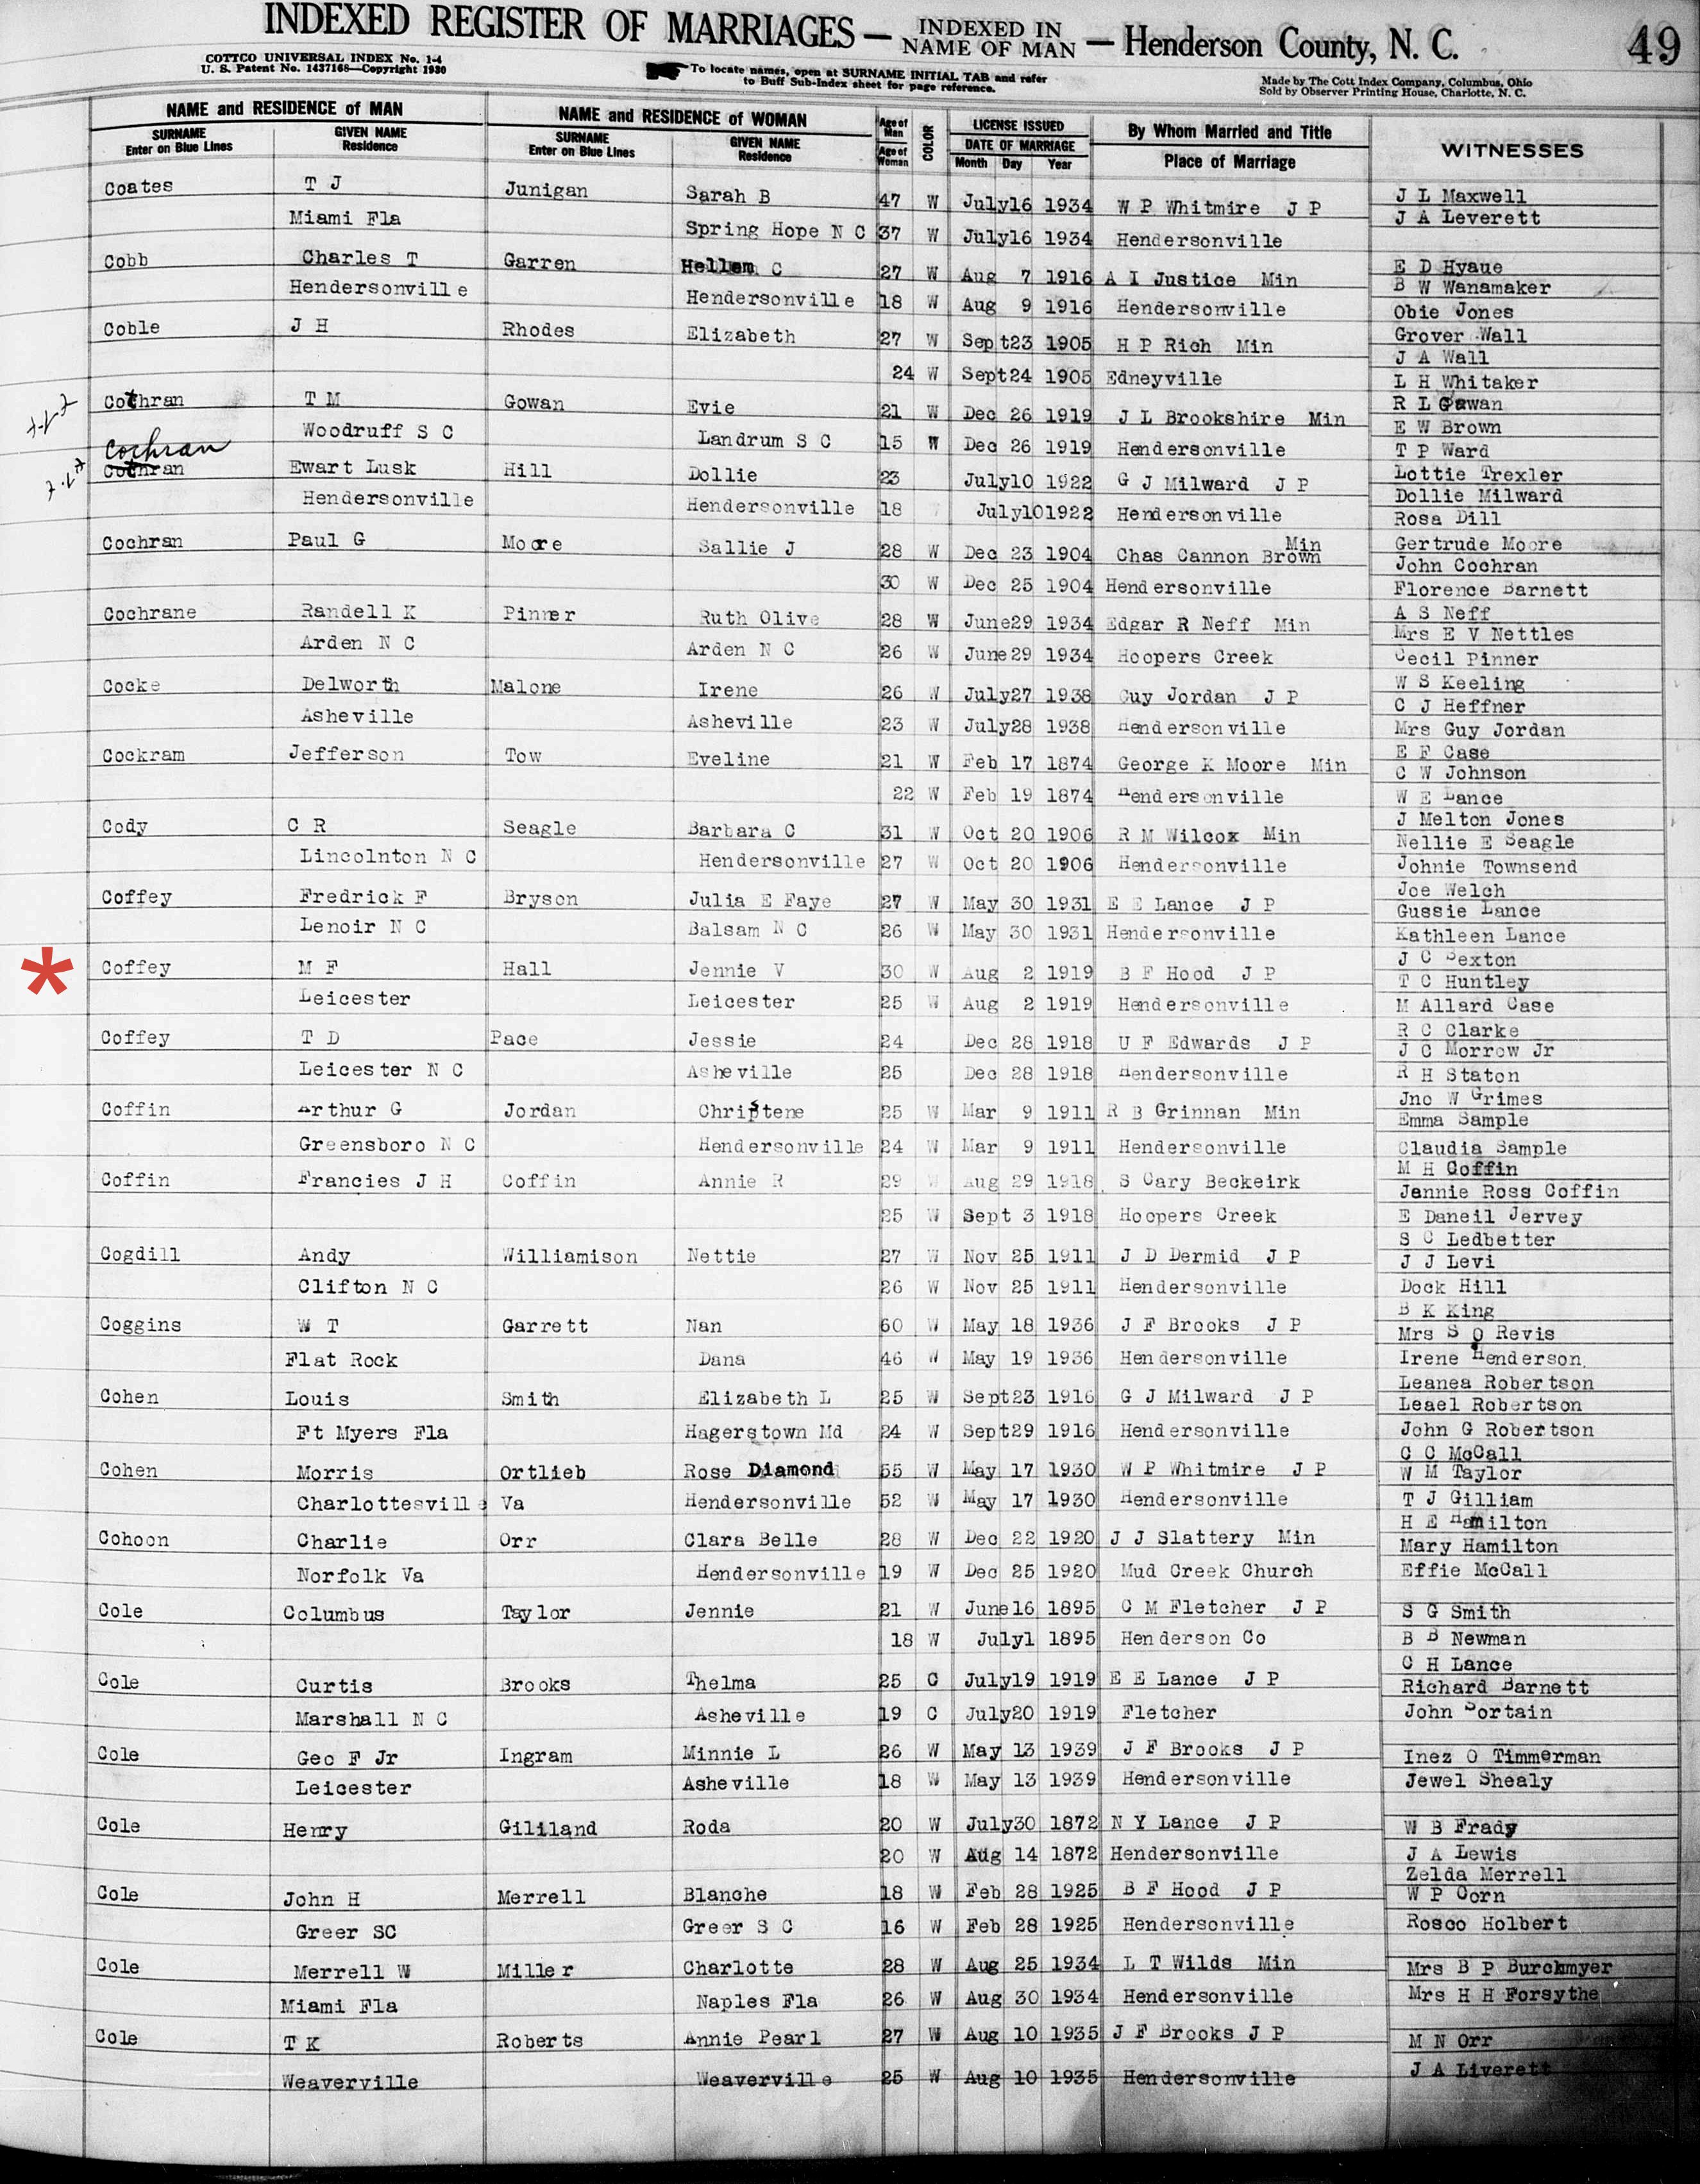 INDEXED REGISTER OF MARRIAGES — INDEXED IN NAME OF MAN — Henderson County, N. C. 49
COTTCO UNIVERSAL INDEX No. 1-4
U. S. Patent No. 1437168—Copyright 1930
To locate names, open at SURNAME INITIAL TAB and refer
to Buff Sub-Index sheet for page reference.
Made by The Cott Index Company, Columbus, Ohio
Sold by Observer Printing House, Charlotte, N. C.
NAME and RESIDENCE of MAN NAME and RESIDENCE of WOMAN Age of Man COLOR LICENSE ISSUED By Whom Married and Title WITNESSES
SURNAME GIVEN NAME SURNAME GIVEN NAME Age of Woman DATE OF MARRIAGE Place of Marriage
Enter on Blue Lines Residence Enter on Blue Lines Residence Month Day Year
Coates T J Junigan Sarah B 47 W July16 1934 W P Whitmire J P J L Maxwell
J A Leverett
Miami Fla Spring Hope N C 37 W July16 1934 Hendersonville
Cobb Charles T Garren Hellem C 27 W Aug 7 1916 A I Justice Min E D Hyaue
B W Wanamaker
Hendersonville Hendersonville 18 W Aug 9 1916 Hendersonville Obie Jones
Coble J H Rhodes Elizabeth 27 W Sept23 1905 H P Rich Min Grover Wall
J A Wall
24 W Sept24 1905 Edneyville L H Whitaker
Cothran T M Gowan Evie 21 W Dec 26 1919 J L Brookshire Min R L Gowan
E W Brown
Woodruff S C Landrum S C 15 W Dec 26 1919 Hendersonville T P Ward
Cochran
Cothran Ewart Lusk Hill Dollie 23 July10 1922 G J Milward J P Lottie Trexler
Dollie Milward
Hendersonville Hendersonville 18 July10 1922 Hendersonville Rosa Dill
Cochran Paul G Moore Sallie J 28 W Dec 23 1904 Chas Cannon Brown Min Gertrude Moore
John Cochran
30 W Dec 25 1904 Hendersonville Florence Barnett
Cochrane Randell K Pinner Ruth Olive 28 W June29 1934 Edgar R Neff Min A S Neff
Mrs E V Nettles
Arden N C Arden N C 26 W June29 1934 Hoopers Creek Cecil Pinner
Cocke Delworth Malone Irene 26 W July27 1938 Guy Jordan J P W S Keeling
C J Heffner
Asheville Asheville 23 W July28 1938 Hendersonville Mrs Guy Jordan
Cockram Jefferson Tow Eveline 21 W Feb 17 1874 George K Moore Min E F Case
C W Johnson
22 W Feb 19 1874 Hendersonville W E Lance
Cody C R Seagle Barbara C 31 W Oct 20 1906 R M Wilcox Min J Melton Jones
Nellie E Seagle
Lincolnton N C Hendersonville 27 W Oct 20 1906 Hendersonville Johnie Townsend
Coffey Fredrick F Bryson Julia E Faye 27 W May 30 1931 E E Lance J P Joe Welch
Gussie Lance
Lenoir N C Balsam N C 26 W May 30 1931 Hendersonville Kathleen Lance
* Coffey M F Hall Jennie V 30 W Aug 2 1919 B F Hood J P J C Sexton
T C Huntley
Leicester Leicester 25 W Aug 2 1919 Hendersonville M Allard Case
Coffey T D Pace Jessie 24 Dec 28 1918 U F Edwards J P R C Clarke
J C Morrow Jr
Leicester N C Asheville 25 Dec 28 1918 Hendersonville R H Staton
Coffin Arthur G Jordan Christene 25 W Mar 9 1911 R B Grinnan Min Jno W Grimes
Emma Sample
Greensboro N C Hendersonville 24 W Mar 9 1911 Hendersonville Claudia Sample
Coffin Francies J H Coffin Annie R 29 W Aug 29 1918 S Cary Beckeirk M H Coffin
Jennie Ross Coffin
25 W Sept 3 1918 Hoopers Creek E Daneil Jervey
Cogdill Andy Williamison Nettie 27 W Nov 25 1911 J D Dermid J P S C Ledbetter
J J Levi
Clifton N C 26 W Nov 25 1911 Hendersonville Dock Hill
Coggins W T Garrett Nan 60 W May 18 1936 J F Brooks J P B K King
Mrs S O Revis
Flat Rock Dana 46 W May 19 1936 Hendersonville Irene Henderson
Cohen Louis Smith Elizabeth L 25 W Sept23 1916 G J Milward J P Leanea Robertson
Leael Robertson
Ft Myers Fla Hagerstown Md 24 W Sept29 1916 Hendersonville John G Robertson
Cohen Morris Ortlieb Rose Diamond 55 W May 17 1930 W P Whitmire J P C C McCall
W M Taylor
Charlottesville Va Hendersonville 52 W May 17 1930 Hendersonville T J Gilliam
Cohoon Charlie Orr Clara Belle 28 W Dec 22 1920 J J Slattery Min H E Hamilton
Mary Hamilton
Norfolk Va Hendersonville 19 W Dec 25 1920 Mud Creek Church Effie McCall
Cole Columbus Taylor Jennie 21 W June16 1895 C M Fletcher J P S G Smith
18 W July1 1895 Henderson Co B B Newman
Cole Curtis Brooks Thelma 25 C July19 1919 E E Lance J P C H Lance
Richard Barnett
Marshall N C Asheville 19 C July20 1919 Fletcher John Sortain
Cole Geo F Jr Ingram Minnie L 26 W May 13 1939 J F Brooks J P Inez O Timmerman
Leicester Asheville 18 W May 13 1939 Hendersonville Jewel Shealy
Cole Henry Gililand Roda 20 W July30 1872 N Y Lance J P W B Frady
20 W Aug 14 1872 Hendersonville J A Lewis
Cole John H Merrell Blanche 18 W Feb 28 1925 B F Hood J P Zelda Merrell
W P Corn
Greer SC Greer S C 16 W Feb 28 1925 Hendersonville Rosco Holbert
Cole Merrell W Miller Charlotte 28 W Aug 25 1934 L T Wilds Min Mrs B P Burckmyer
Miami Fla Naples Fla 26 W Aug 30 1934 Hendersonville Mrs H H Forsythe
Cole T K Roberts Annie Pearl 27 W Aug 10 1935 J F Brooks J P M N Orr
Weaverville Weaverville 25 W Aug 10 1935 Hendersonville J A Liverett